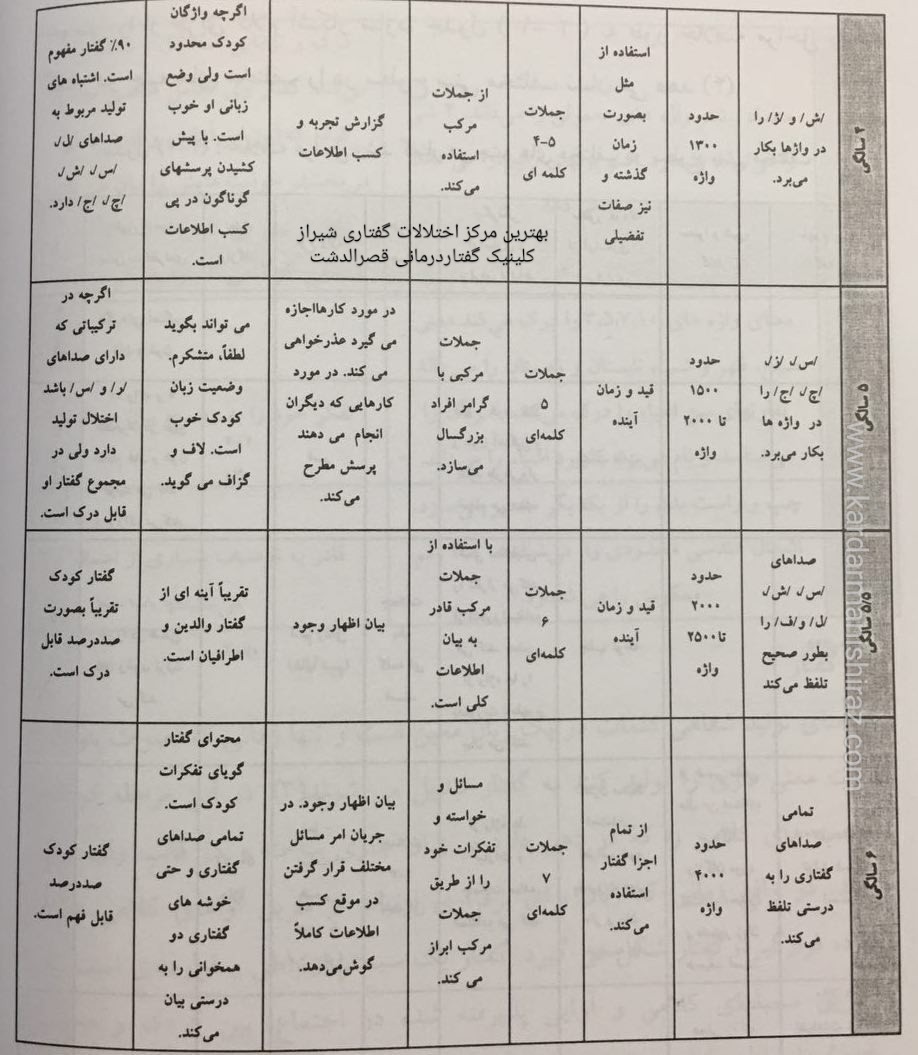 ۴ سالگی
/ش/ و /ژ/ را
در واژها بکار
می‌برد.
حدود
۱۳۰۰
واژه
استفاده از
مثل
بصورت
زمان
گذشته و
نیز صفات
تفضیلی
جملات
۴-۵
کلمه ای
از جملات
مرکب
استفاده
می‌کند.
گزارش تجربه و
کسب اطلاعات
اگرچه واژگان
کودک محدود
است ولی وضع
زبانی او خوب
است. با پیش
کشیدن پرسشهای
گوناگون در پی
کسب اطلاعات
است.
۹۰٪ گفتار مفهوم
است. اشتباه های
تولید مربوط به
صداهای /ل/،
/س/، /ش/،
/چ/، /ج/ دارد.
بهترین مرکز اختلالات گفتاری شیراز
کلینیک گفتاردرمانی قصرالدشت
۵ سالگی
/س/، /ز/،
/چ/، /ج/ را
در واژه ها
بکار می‌برد.
حدود
۱۵۰۰
تا ۲۰۰۰
واژه
قید و زمان
آینده
جملات
۵
کلمه‌ای
جملات
مرکبی با
گرامر افراد
بزرگسال
می‌سازد.
در مورد کارهااجازه
می گیرد عذرخواهی
می کند. در مورد
کارهایی که دیگران
انجام می دهند
پرسش مطرح
می‌کند.
می تواند بگوید
لطفاً، متشکرم.
وضعیت زبان
کودک خوب
است. لاف و
گزاف می گوید.
اگرچه در
ترکیباتی که
دارای صداهای
/ر/ و /س/ باشد
اختلال تولید
دارد ولی در
مجموع گفتار او
قابل درک است.
۵/۵ سالگی
صداهای
/س/، /ش/،
/ل/ و /ف/ را
بطور صحیح
تلفظ می‌کند
حدود
۲۰۰۰
تا ۲۵۰۰
واژه
قید و زمان
آینده
جملات
۶
کلمه‌ای
با استفاده از
جملات
مرکب قادر
به بیان
اطلاعات
کلی است.
بیان اظهار وجود
تقریباً آینه ای از
گفتار والدین و
اطرافیان است.
گفتار کودک
تقریباً بصورت
صددرصد قابل
درک است.
۶ سالگی
تمامی
صداهای
گفتاری را به
درستی تلفظ
می‌کند.
حدود
۴۰۰۰
واژه
از تمام
اجزا گفتار
استفاده
می‌کند.
جملات
۷
کلمه‌ای
مسائل و
خواسته و
تفکرات خود
را از طریق
جملات
مرکب ابراز
می کند.
بیان اظهار وجود. در
جریان امر مسائل
مختلف قرار گرفتن
در موقع کسب
اطلاعات کاملاً
گوش‌می‌دهد.
محتوای گفتار
گویای تفکرات
کودک است.
تمامی صداهای
گفتاری و حتی
خوشه های
گفتاری دو
همخوانی را به
درستی بیان
می‌کند.
گفتار کودک
صددرصد
قابل فهم است.
www.kardarmanishiraz.com